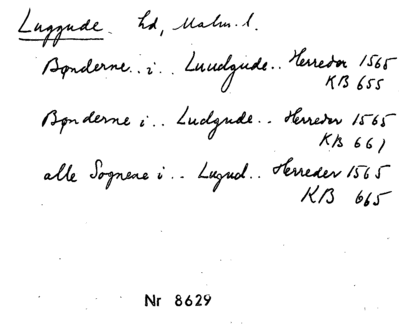 Luggude hd, Malm. l.
Bønderne.. i.. Luudgude.. Herreder 1565
KB 655
Bønderne i.. Ludgude.. Herreder 1565
KB 661
alle Sognene i.. Lugud.. Herreder 1565
KB 665
Nr 8629